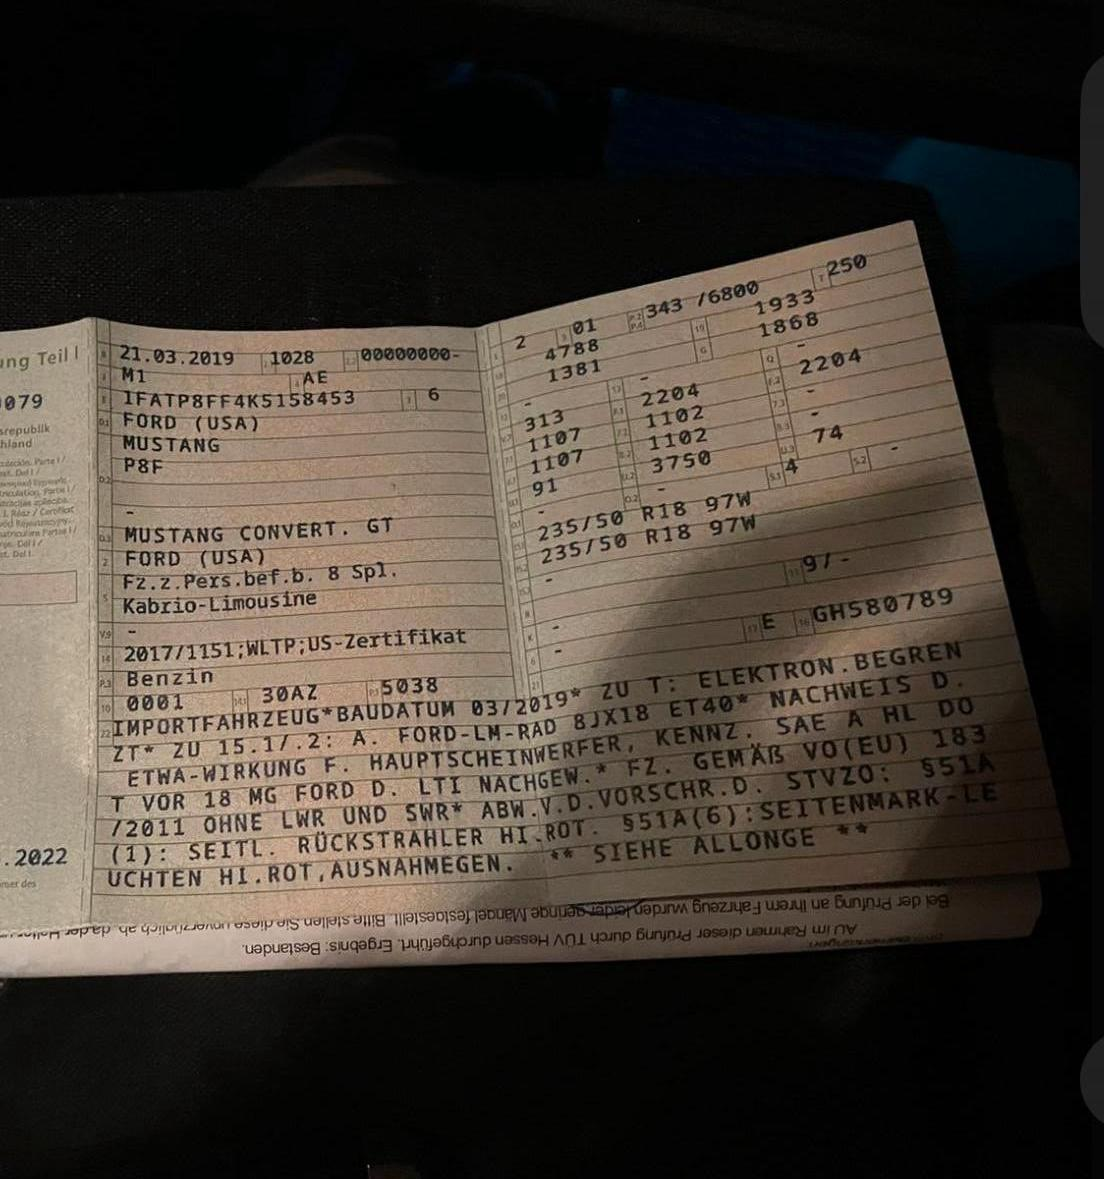 ung Teil I
079
srepublik
hland
.2022
21.03.2019 1028 00000000-
M1 AE
1FATP8FF4K5158453 6
FORD (USA)
MUSTANG
P8F
-
MUSTANG CONVERT. GT
FORD (USA)
Fz.z.Pers.bef.b. 8 Spl.
Kabrio-Limousine
-
2017/1151;WLTP;US-Zertifikat
Benzin
0001 30AZ 5038
2 01 343 /6800 250
4788 1933
1381 1868
- - -
313 2204 2204
1107 1102 -
1107 1102 -
91 3750 74
- - 4 -
235/50 R18 97W
235/50 R18 97W
- 9/-
-
- E GH580789
-
IMPORTFAHRZEUG*BAUDATUM 03/2019* ZU T: ELEKTRON.BEGREN
ZT* ZU 15.1/.2: A. FORD-LM-RAD 8JX18 ET40* NACHWEIS D.
ETWA-WIRKUNG F. HAUPTSCHEINWERFER, KENNZ. SAE A HL DO
T VOR 18 MG FORD D. LTI NACHGEW.* FZ. GEMÄß VO(EU) 183
/2011 OHNE LWR UND SWR* ABW.V.D.VORSCHR.D. STVZO: §51A
(1): SEITL. RÜCKSTRAHLER HI.ROT. §51A(6):SEITENMARK-LE
UCHTEN HI.ROT,AUSNAHMEGEN. ** SIEHE ALLONGE **
AU im Rahmen dieser Prüfung durch TÜV Hessen durchgeführt. Ergebnis: Bestanden.
Bei der Prüfung an Ihrem Fahrzeug wurden leider geringe Mängel festgestellt. Bitte stellen Sie diese unverzüglich ab, da der